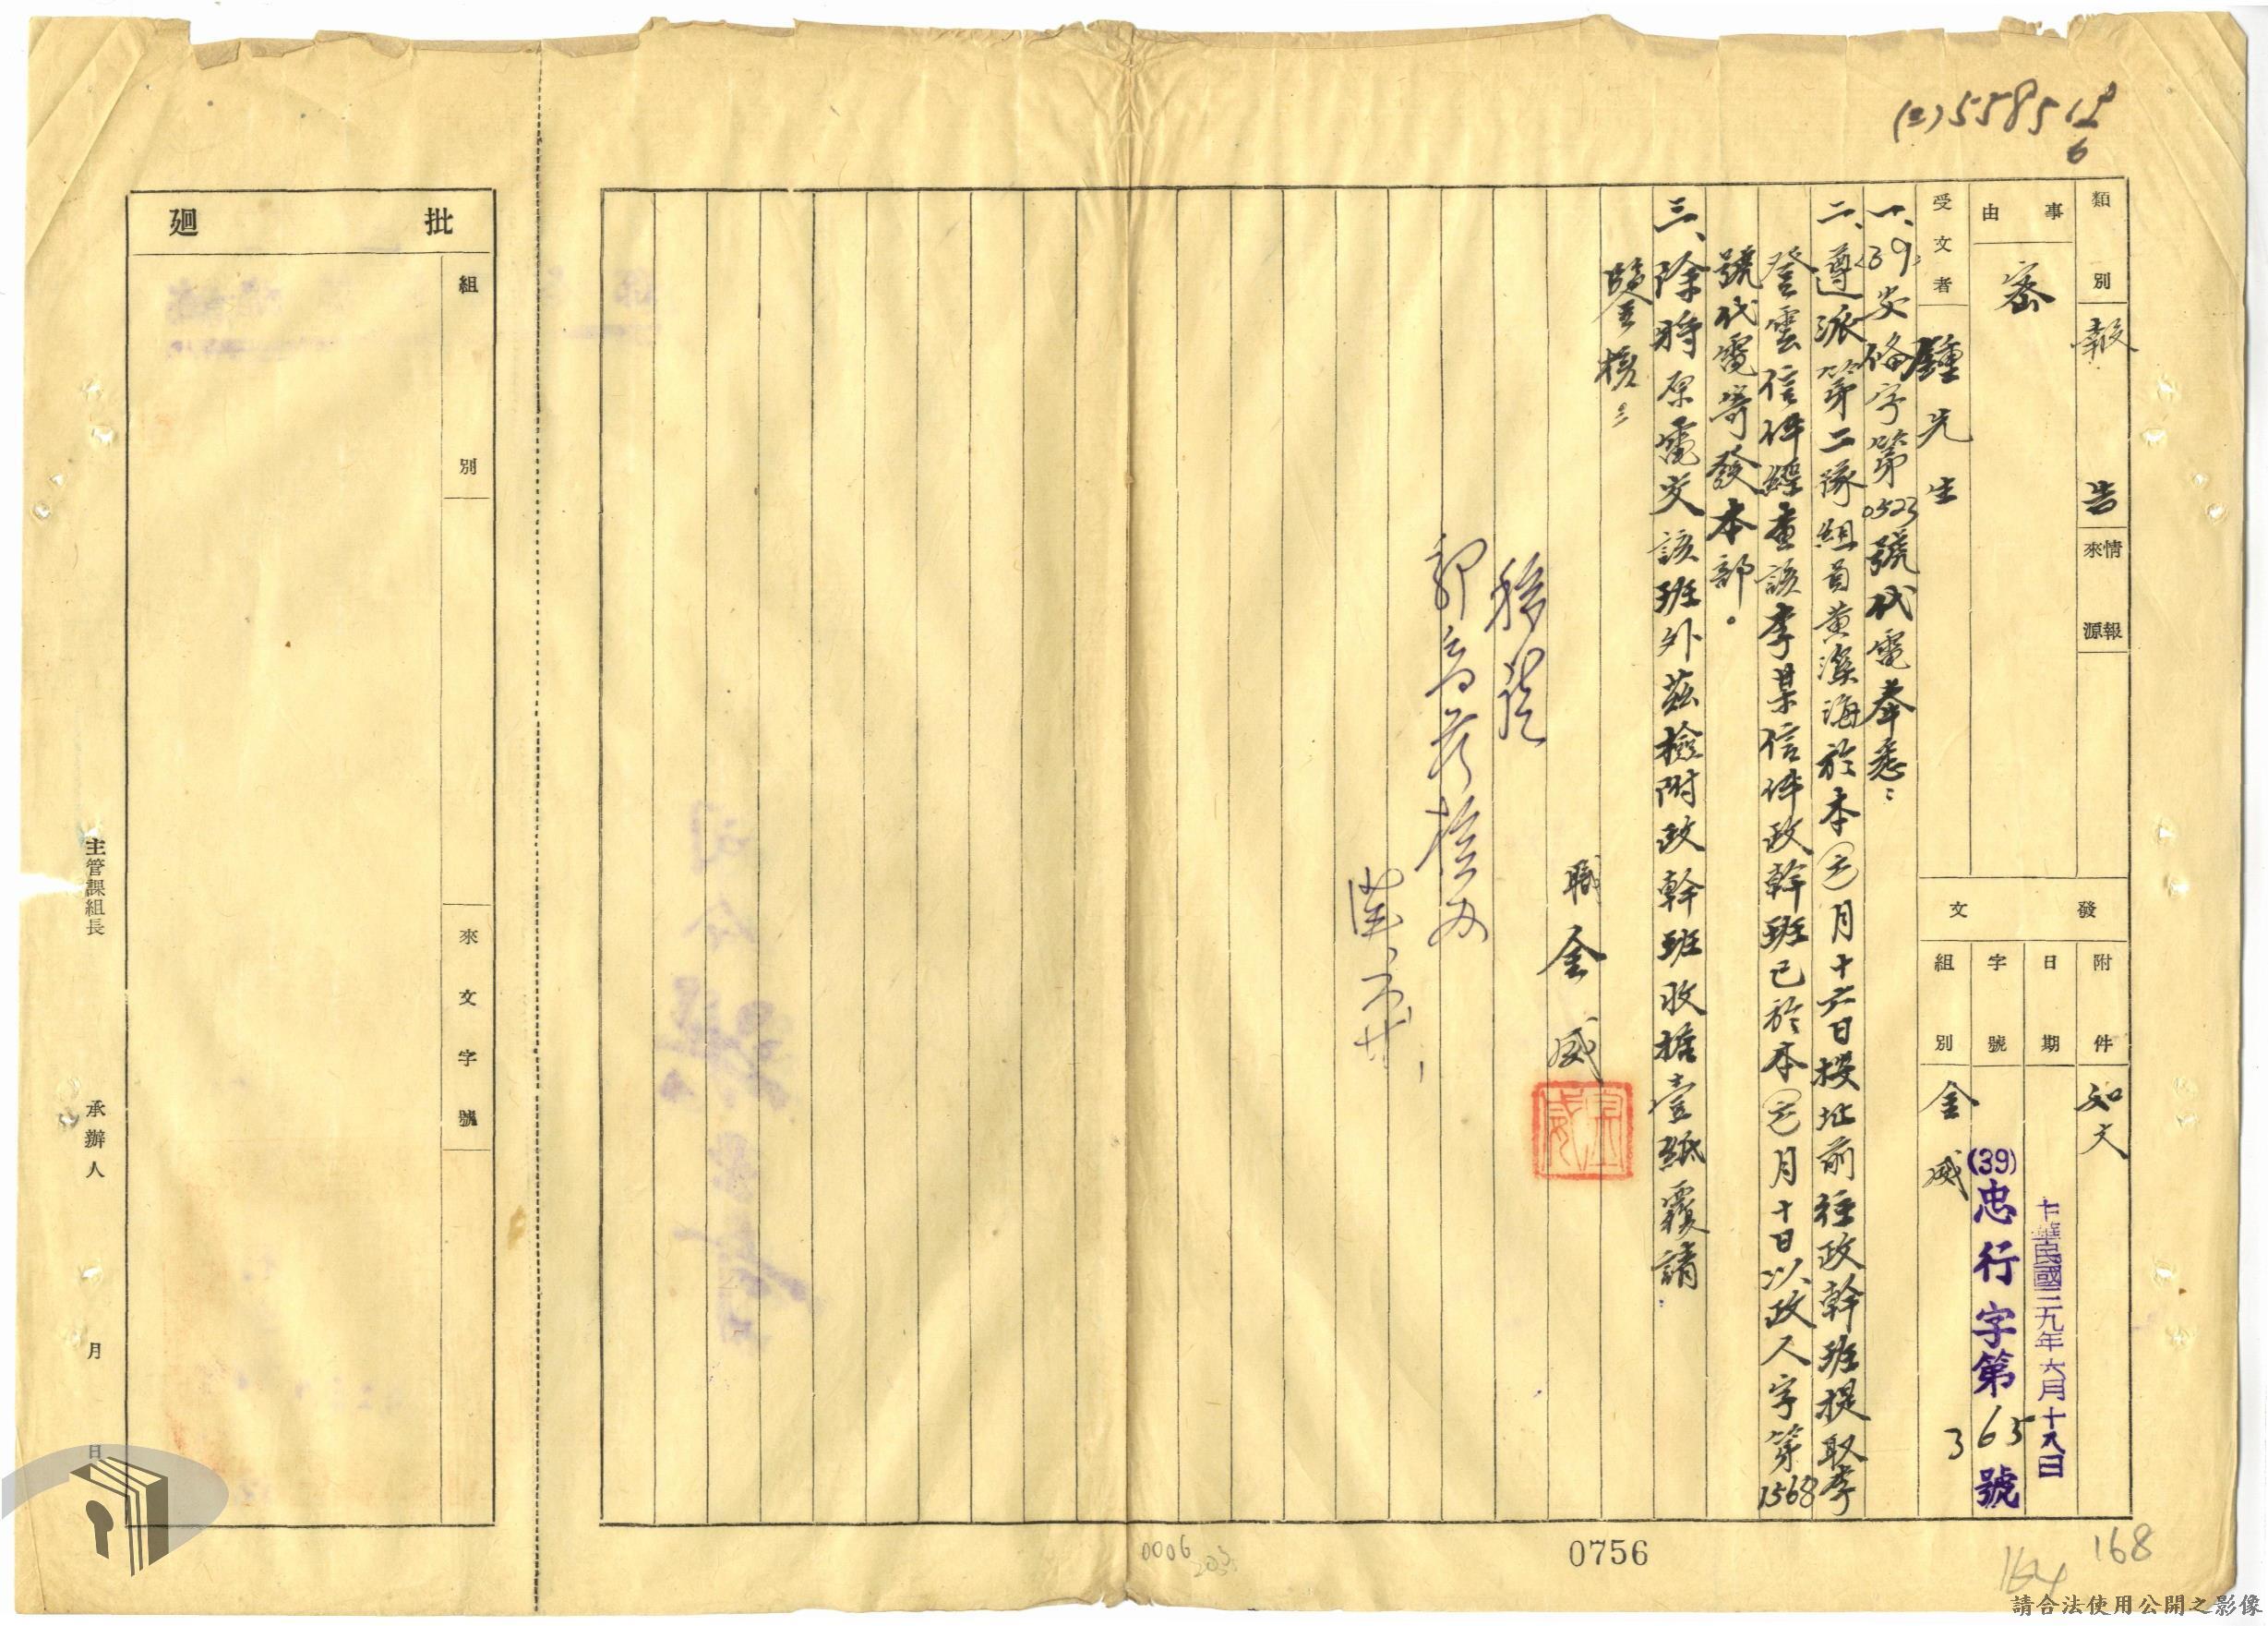 (三)5585 18/6
類別
報告
情報來源
事由
密
受文者
鍾先生
發文
附件
如文
日期
中華民國三九年六月十八日
字號
(39)忠行字第365號
組別
金威
一、(39)安倫字第0523號代電奉悉:
二、遵派第二隊組員黃溪海於本(六)月十六日按址前往政幹班提取李
登雲信件經查該李某信件政幹班已於本(六)月十日以政人字第1568
號代電寄發本部。
三、除將原電交該班外茲檢附政幹班收據壹紙覆請
鑒核:
職 金威
金威
批廻
組別
來文字號
主管課組長
承辦人
月
日
0006
0756
164
168
請合法使用公開之影像